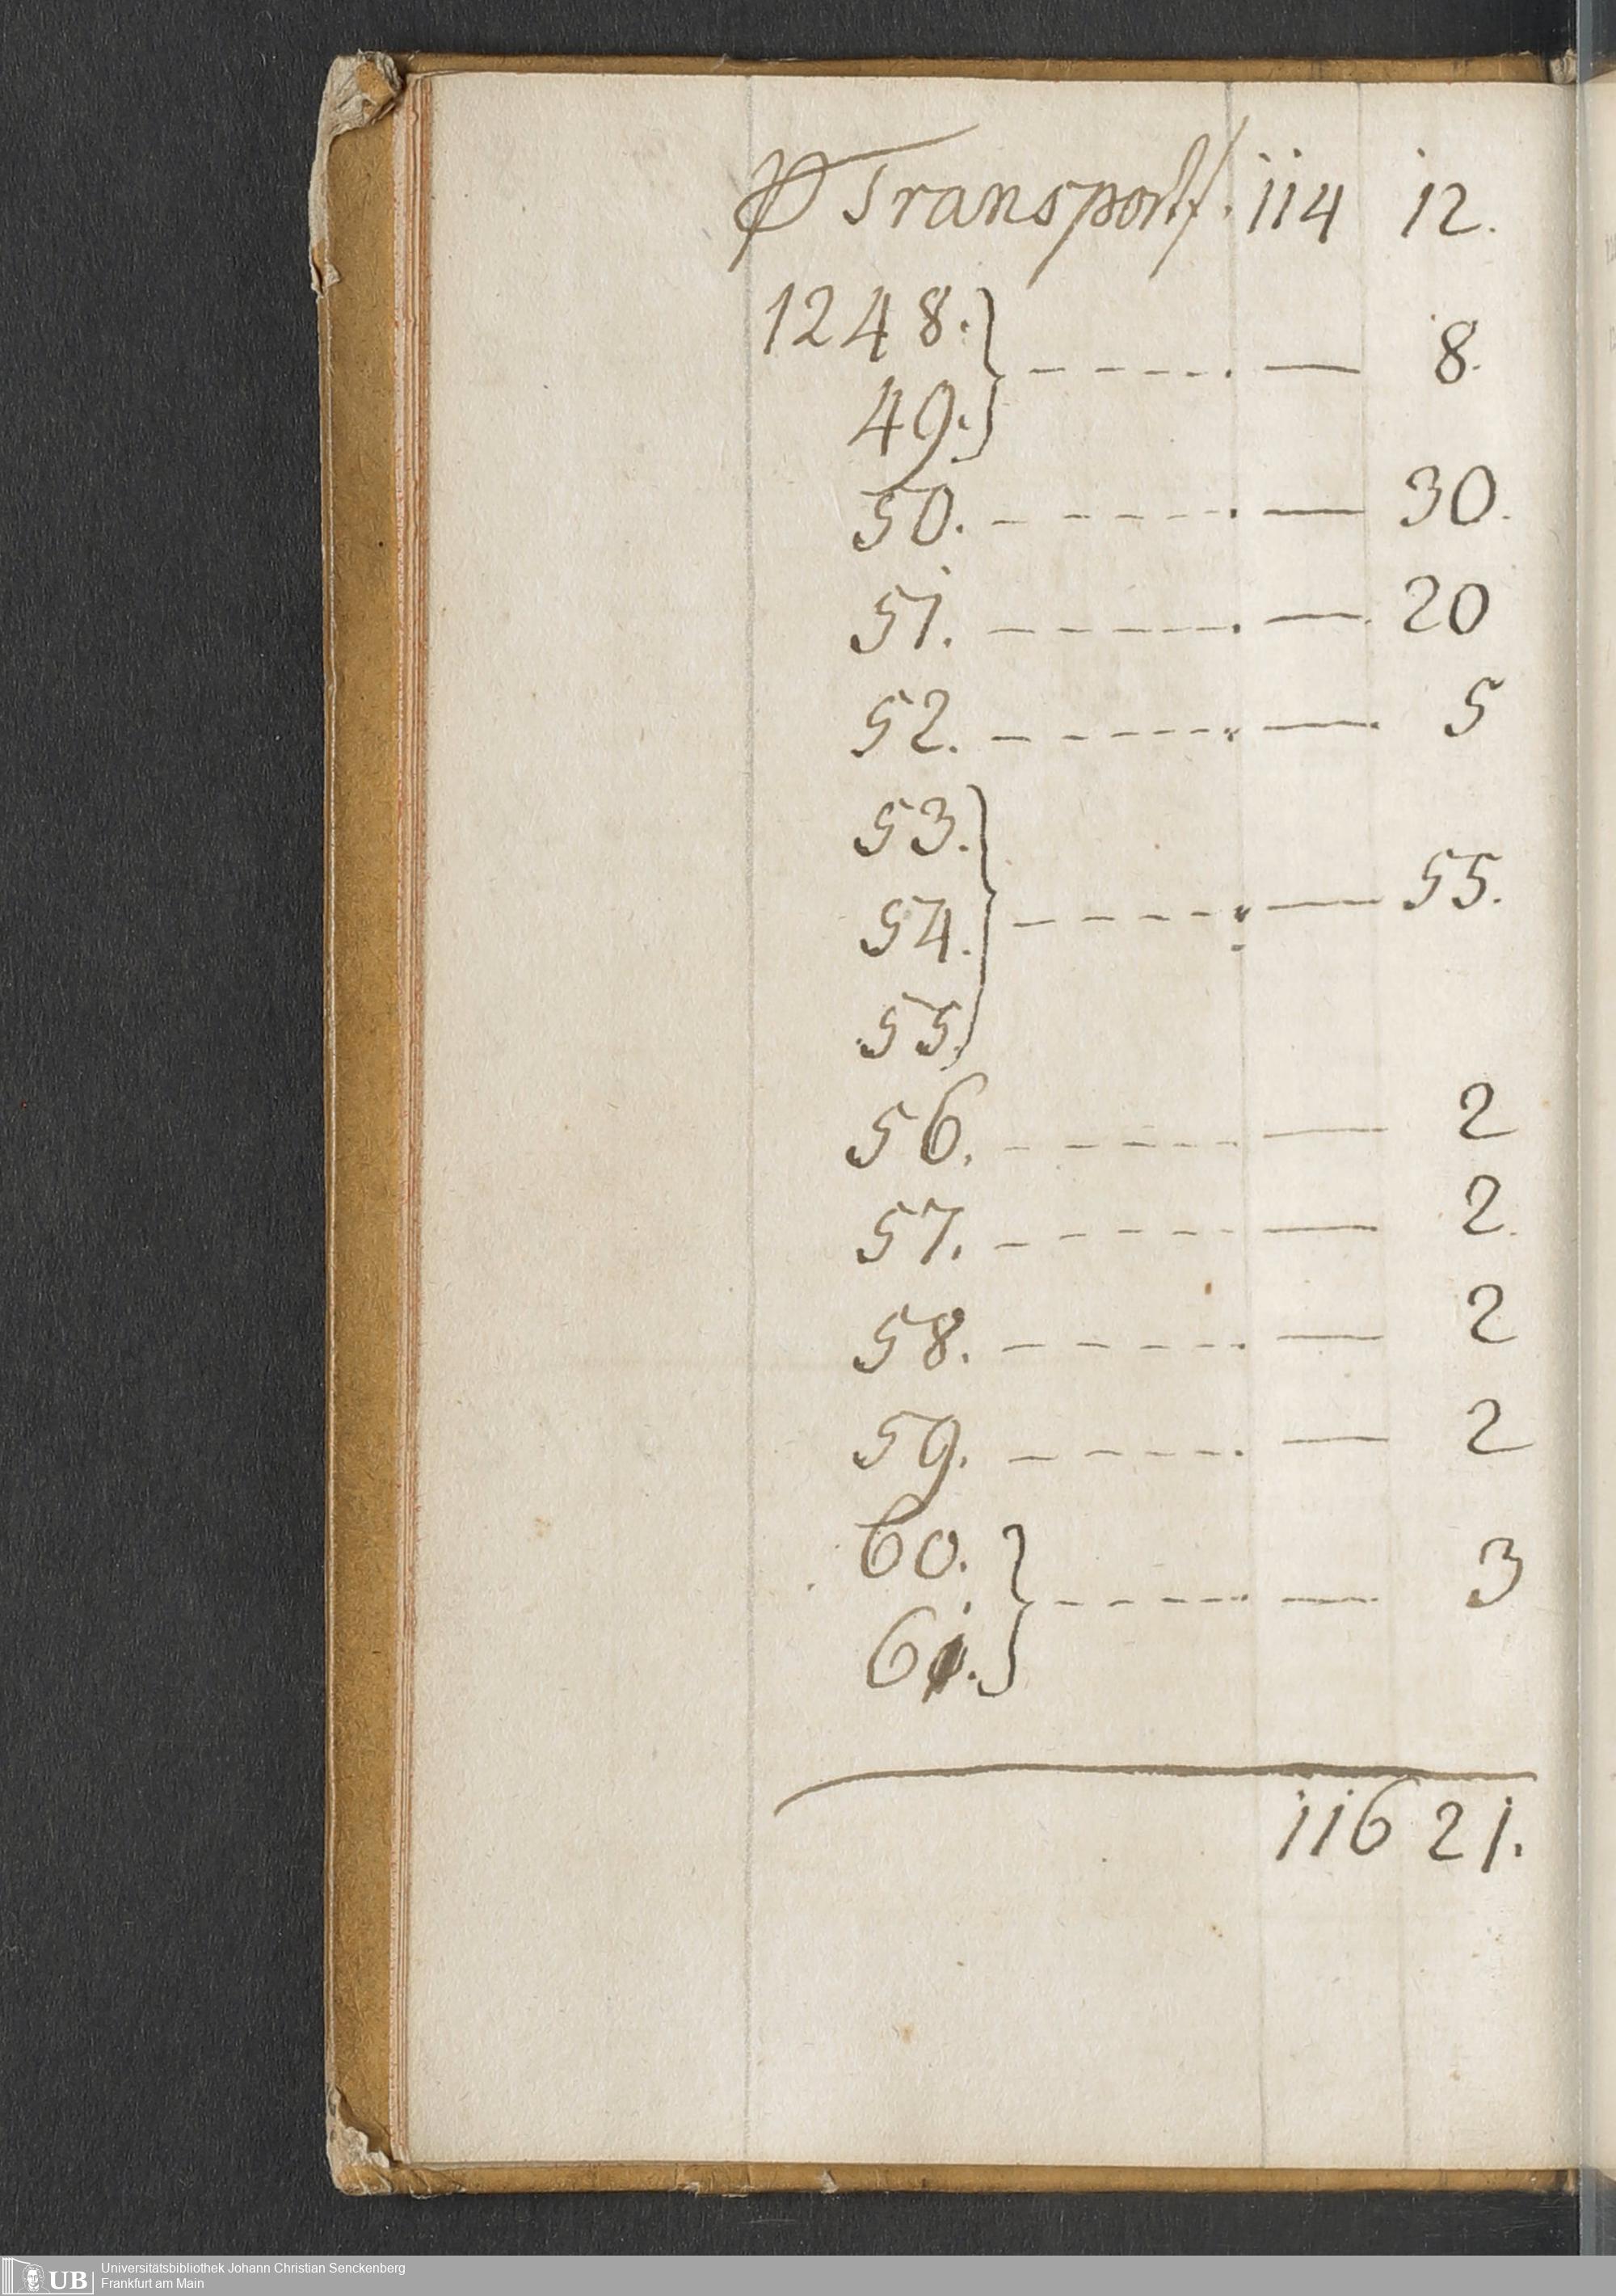 P Transport f. 114 12.
1248.
49. } - - - - - . — 8.
50. - - - - - . — 30.
51. - - - - - . — 20
52. - - - - - . — 5
53.
54. } - - - - - . — 55.
55.
56. - - - - - — 2
57. - - - - - — 2.
58. - - - - - . — 2
59. - - - - - . — 2
60.
61. } - - - - - . — 3
116 21.
UB Universitätsbibliothek Johann Christian Senckenberg
Frankfurt am Main